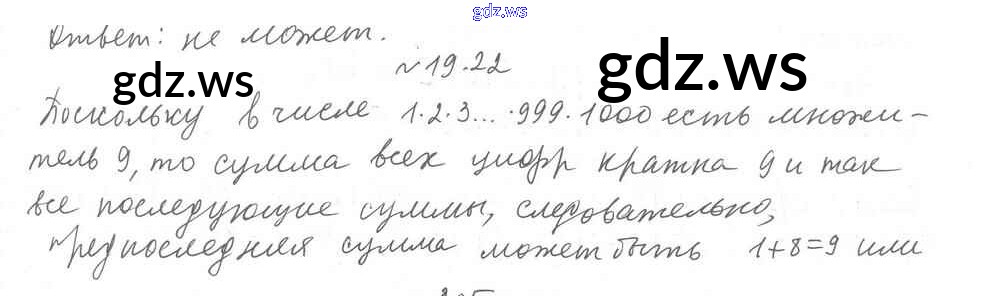 gdz.ws
Ответ: не может.
№19.22
gdz.ws
gdz.ws
Поскольку в числе 1·2·3...·999·1000 есть множи-
тель 9, то сумма всех цифр кратна 9 и так
все последующие суммы, следовательно,
предпоследняя сумма может быть 1+8=9 или